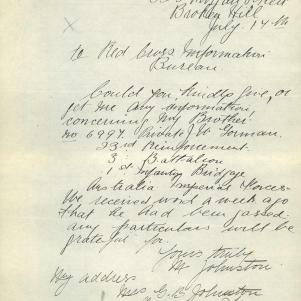 Broken Hill
July 14th
To Red Cross Information
Bureau.
Could you kindly give, or
get me any information
concerning My Brother
no 6997. Private J. W. Gorman.
23rd Reinforcement
3rd Battalion
1st Infantry Bridgage
Australia Imperial Forces
We received word a week ago
that he had been gassed
any particulars will be
grateful for.
Yours truly
M Johnston.
My address
Mrs G. B. Johnston